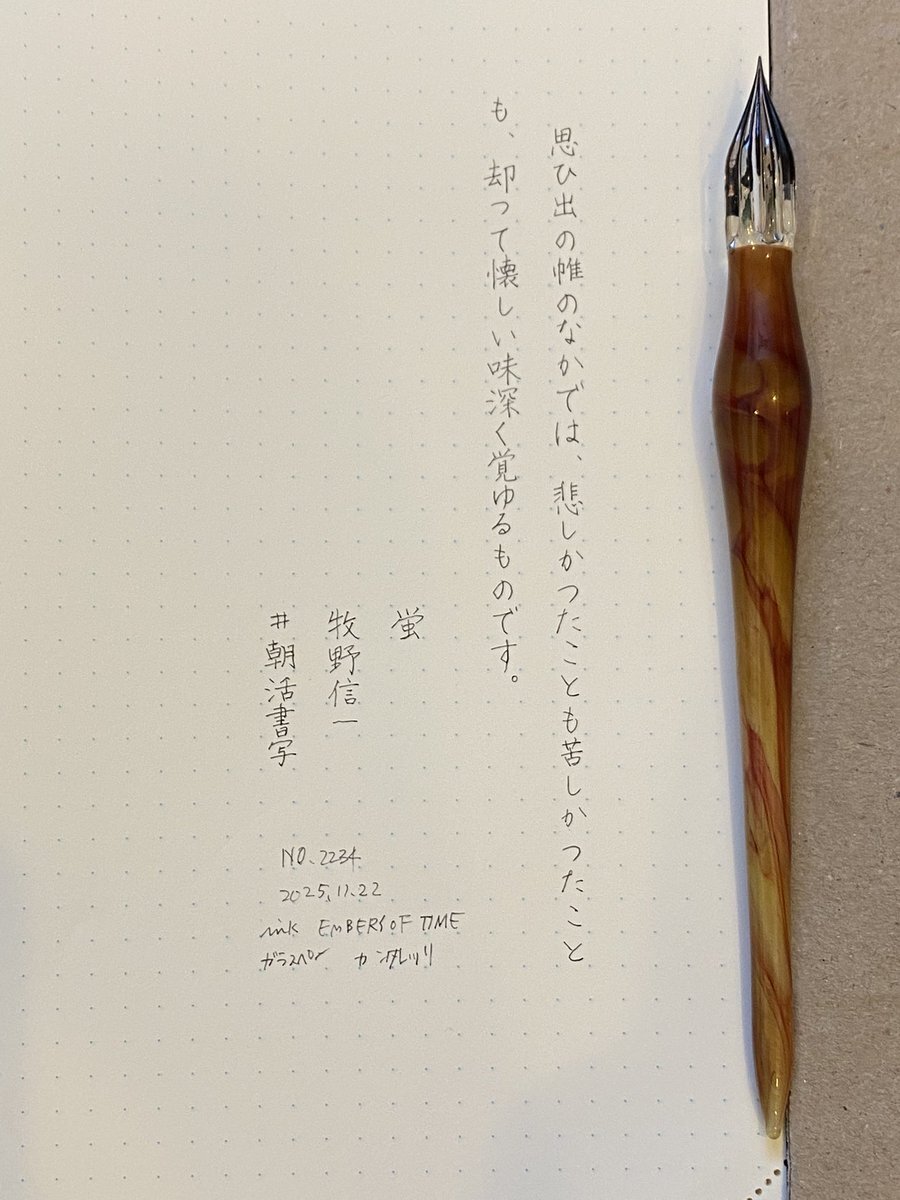 思ひ出の帷のなかでは、悲しかつたことも苦しかつたこと
も、却つて懐しい味深く覚ゆるものです。
蛍
牧野信一
#朝活書写
NO.2234
2025.11.22
ink EMBERS OF TIME
ガラスペン カンタレッリ